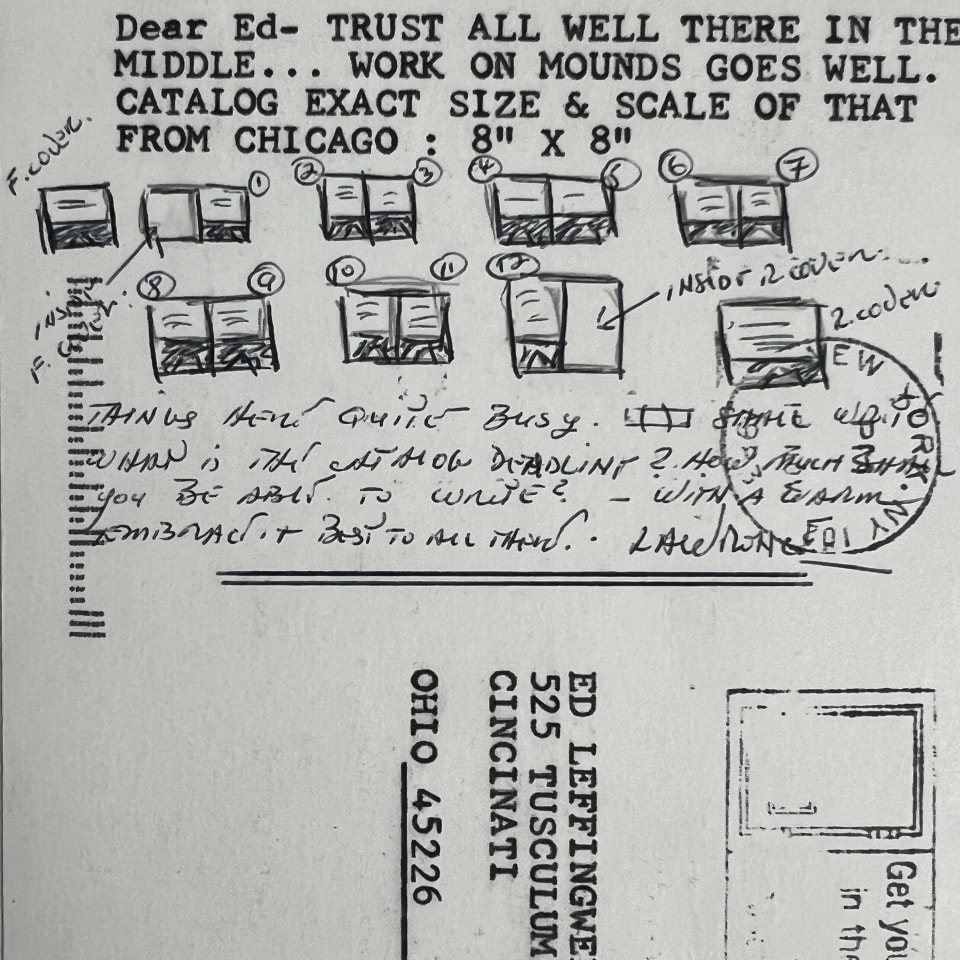 Dear Ed- TRUST ALL WELL THERE IN THE
MIDDLE... WORK ON MOUNDS GOES WELL.
CATALOG EXACT SIZE & SCALE OF THAT
FROM CHICAGO : 8" X 8"
F. COVER.
1
2
3
4
5
6
7
8
9
10
11
12
INSIDE 2 COVER
2. COVER
F.
THINGS HERE QUITE BUSY.
WHAT IS THE CATALOG DEADLINE? HOW MUCH
YOU BE ABLE TO WRITE? - WITH A WARM
EMBRACE & BEST TO ALL THERE.
NEW YORK, NY
ED LEFFINGWE
525 TUSCULUM
CINCINATI
OHIO 45226
Get you
in the